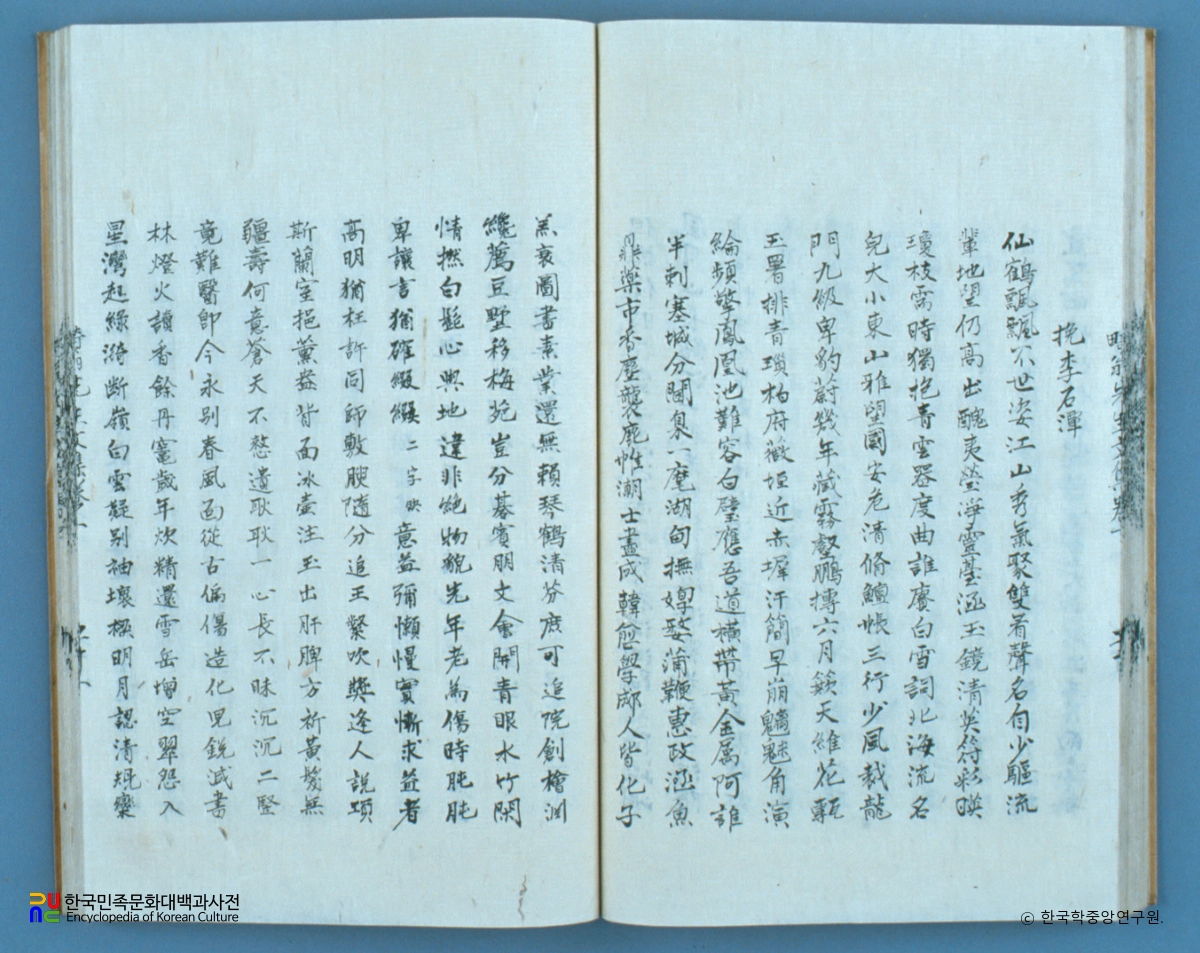 挽李石潭
仙鶴飄飄不世姿江山秀氣聚雙眉聲名自少驅流
輩地望仍高出醜夷瑩海靈臺涵玉鏡清英符彩暎
瓊枝霄時獨抱青雲器度曲誰賡白雪詞北海流名
兒大小東山雅望國安危清脩鱣帳三行少風裁龍
門九級卑豹蔚幾年藏霧彀鵬摶六月簸天維花甎
玉署排青瑣柏府薇垣近赤墀汗簡早崩魑魅角演
綸頻擎鳳凰池難容白璧應吾道橫帶黃金屬阿誰
半刺塞城分閫一麾湖甸撫嫠蒲鞭惠政涵魚
藥市香塵襲鹿帷潮士盡成韓愈學鄰人皆化子
羔裘圖書素業還無賴琴鶴清芬庶可追院創檜淵
纔薦豆墅移梅苑豈分碁賓朋文會開青眼水竹閑
情撫白髭心與地違非絶物貌先年老為傷時肫肫
卑讓言猶確綴綴二字缺意益彌懶慢實慚求益者
高明猶枉許同師敷腴隨分追王粲吹奬逢人説項
斯蘭室挹薰盎背面冰壺注玉出肝脾方祈黃髮無
疆壽何意蒼天不憖遺耿耿一心長不昧沉沉二竪
竟難醫卽今永别春風函從古偏傷造化兒鋭減書
林燈火讀香餘丹竈歲年炊精還雪岳增空翠怨入
星灣起綠漪斷嶺白雲疑别袖壞樑明月認清規欒
한국민족문화대백과사전
Encyclopedia of Korean Culture
© 한국학중앙연구원.